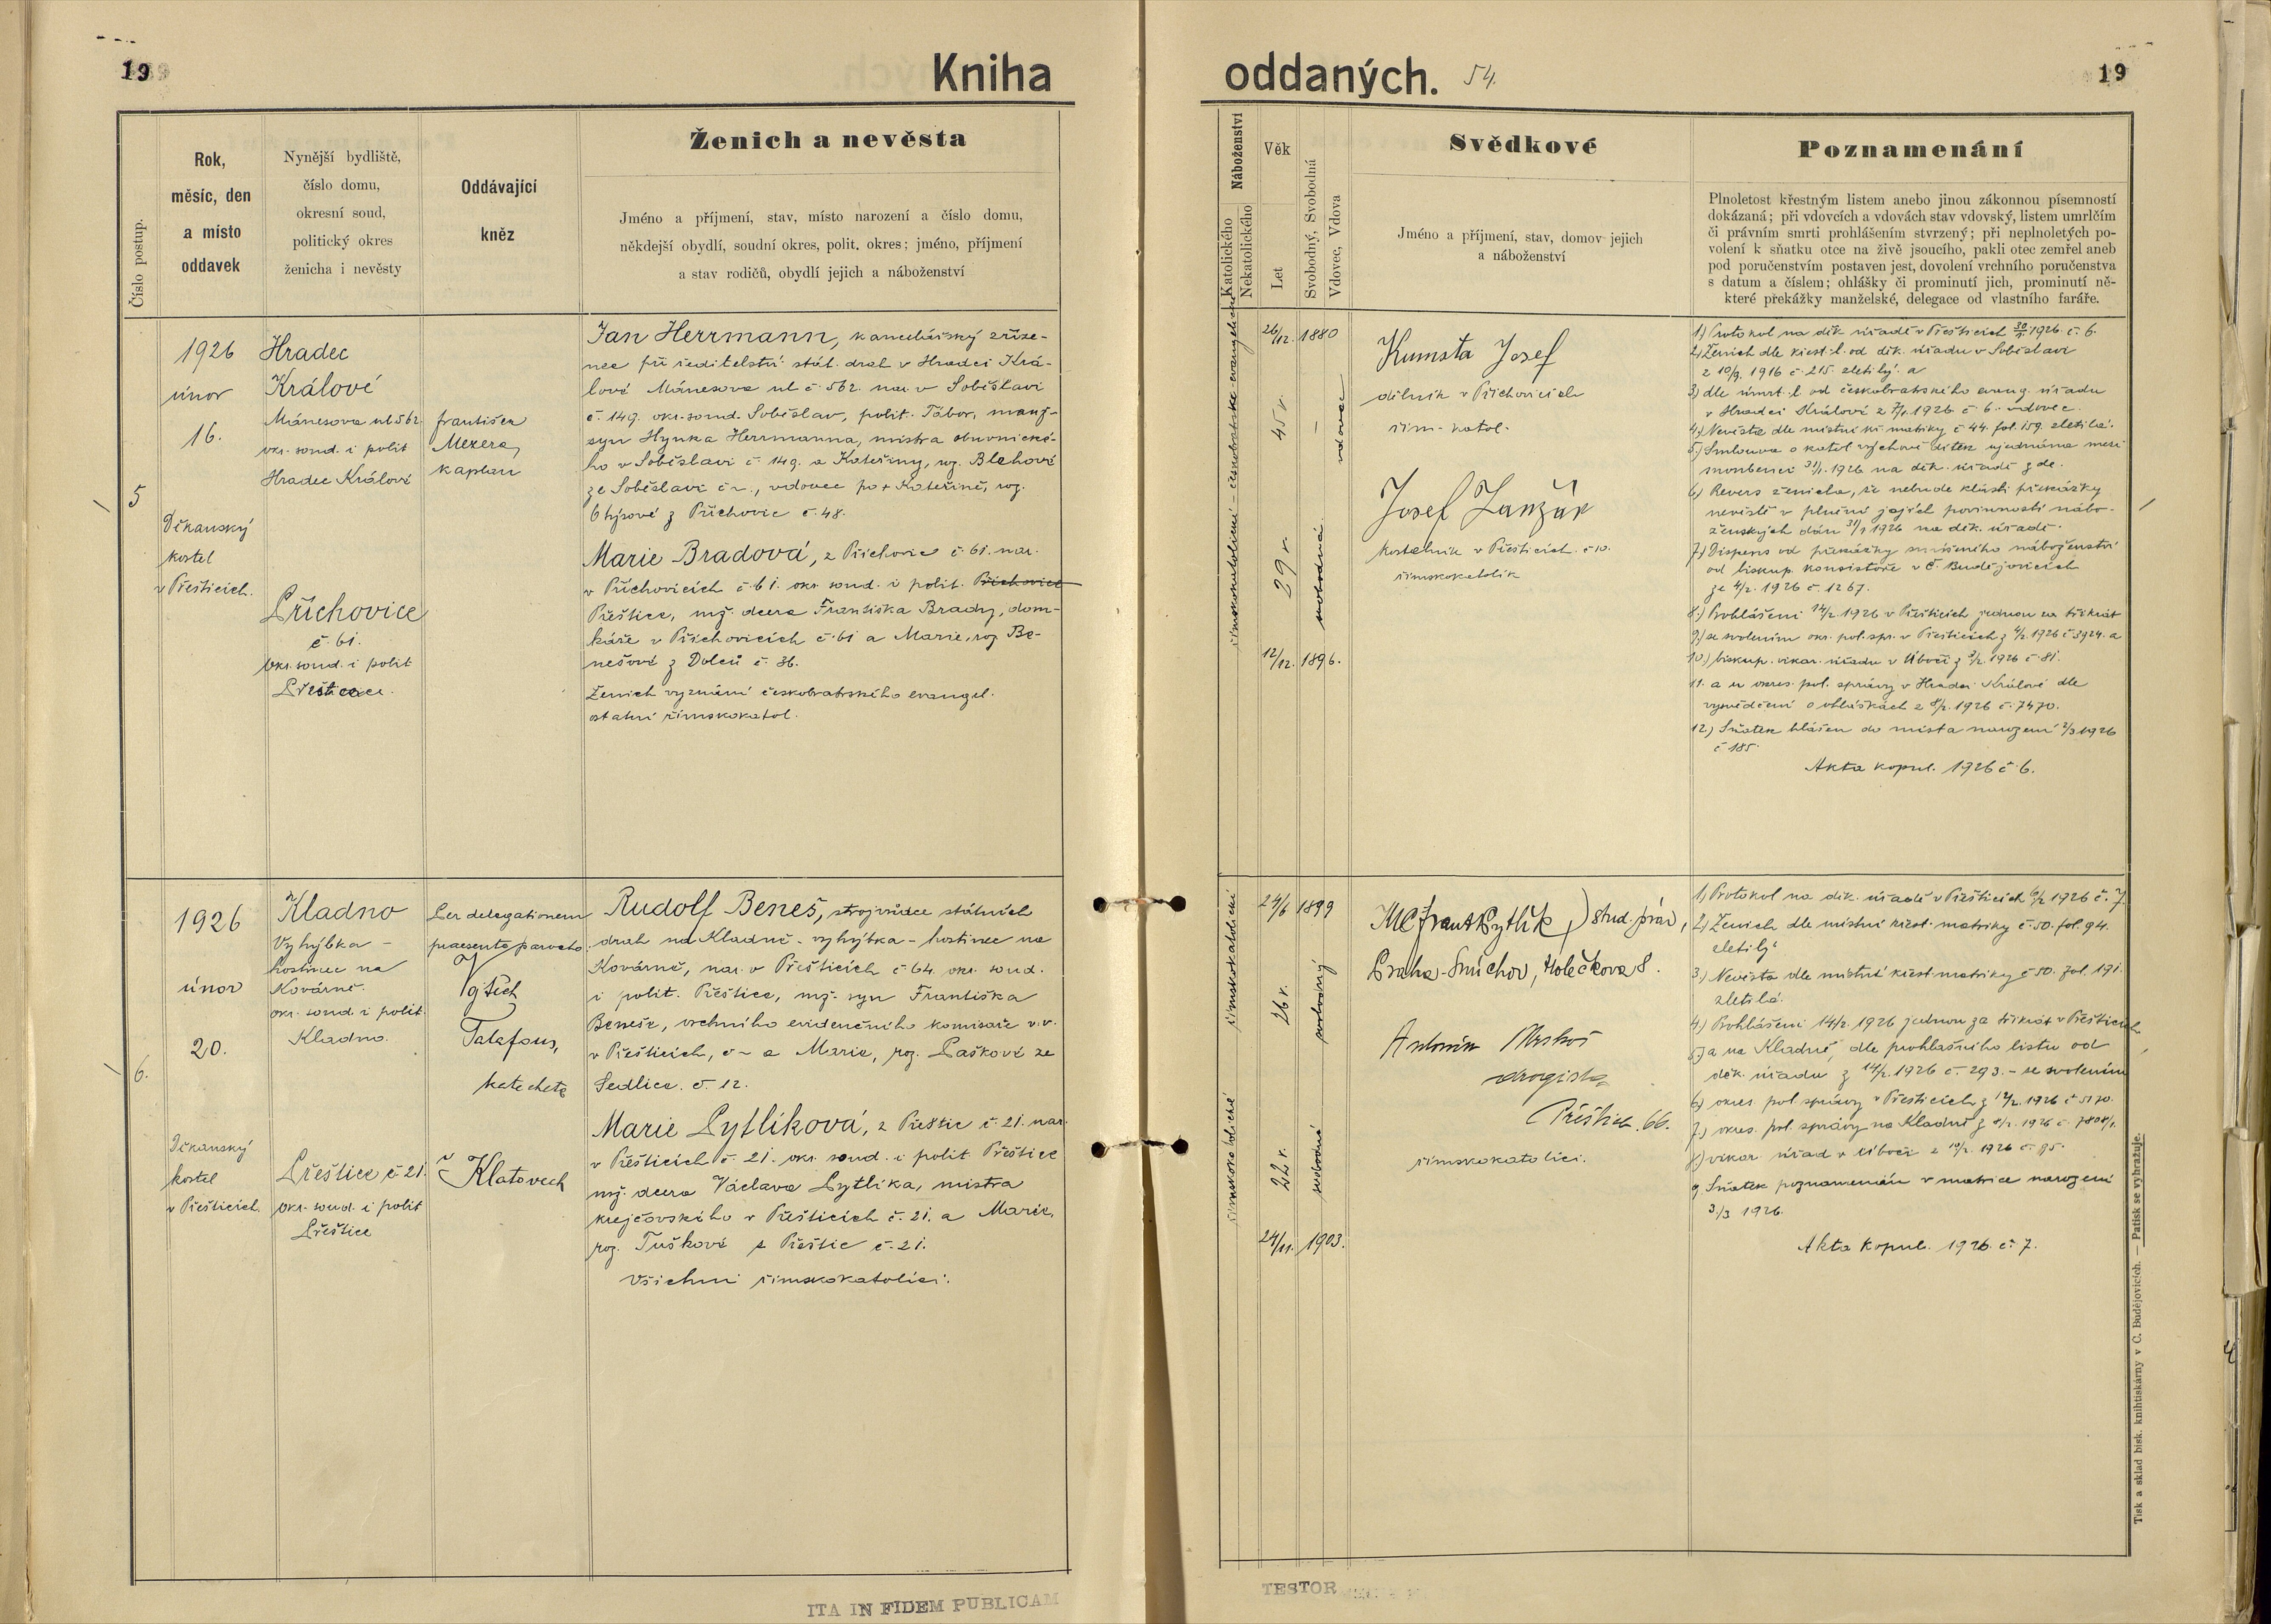 19
Kniha
Číslo postup.
Rok,
měsíc, den
a místo
oddavek
Nynější bydliště,
číslo domu,
okresní soud,
politický okres
ženicha i nevěsty
Oddávající
kněz
Ženich a nevěsta
Jméno a příjmení, stav, místo narození a číslo domu,
někdejší obydlí, soudní okres, polit. okres; jméno, příjmení
a stav rodičů, obydlí jejich a náboženství
5
1926
únor
16.
Děkanský
kostel
v Přešticích.
Hradec
Králové
Mánesova ul 562
okr. soud. i polit
Hradec Králové
Příchovice
č. 61.
okr. soud. i polit
Přeštice.
František
Mezera,
kaplan
Jan Herrmann, kancelářský zříze-
nec při ředitelství stát. drah v Hradci Krá-
lové Mánesova ul č. 562. nar. v Soběslavi
č. 149. okr. soud. Soběslav, polit. Tábor, manž-
syn Hynka Herrmanna, mistra obuvnické-
ho v Soběslavi č. 149. a Kateřiny, roz. Blehové
ze Soběslavi č –, vdovec po + Kateřině, roz.
z Příchovic č. 48.
Marie Bradová, z Příchovic č. 61. nar.
v Příchovicích č. 61. okr. soud. i polit. Příchovice
Přeštice, mž. dcera Františka Brady, dom-
káře v Příchovicích č. 61 a Marie, roz Be-
nešové z Dolců č. 36.
Ženich vyznání českobratrského evangel.
ostatní římskokatol.
6.
1926
únor
20.
Děkanský
kostel
v Přešticích.
Kladno
Vyhýbka –
hostinec na
Kovárně.
okr. soud. i polit.
Kladno.
Přeštice č 21.
okr. soud. i polit
Přeštice
Per delegationem
praesente parocho.
Vojtěch
Talafous,
katecheta
Klatovech
Rudolf Beneš, strojvůdce státních
drah na Kladně – vyhýbka – hostinec na
Kovárně, nar. v Přešticích č. 64. okr. soud.
i polit. Přeštice, mž. syn Františka
Beneše, vrchního evidenčního komisaře v. v.
v Přešticích, č – a Marie, roz. Paškové ze
Sedlice. č. 12.
Marie Pytlíková, z Přeštic č. 21. nar.
v Přešticích č. 21. okr. soud. i polit Přeštice
mž. dcera Václava Pytlíka, mistra
krejčovského v Přešticích č. 21. a Marie,
roz. Tuškové z Přeštic č. 21.
Všichni římskokatolíci.
ITA IN FIDEM PUBLICAM
oddaných.
54.
19
Náboženství
Katolického
Nekatolického
Věk
Let
Svobodný, Svobodná
Vdovec, Vdova
Svědkové
Jméno a příjmení, stav, domov jejich
a náboženství
Poznamenání
Plnoletost křestným listem anebo jinou zákonnou písemností
dokázaná; při vdovcích a vdovách stav vdovský, listem umrlčím
či právním smrti prohlášením stvrzený; při neplnoletých po-
volení k sňatku otce na živě jsoucího, pakli otec zemřel aneb
pod poručenstvím postaven jest, dovolení vrchního poručenstva
s datum a číslem; ohlášky či prominutí jich, prominutí ně-
které překážky manželské, delegace od vlastního faráře.
českobratrské evangelické
římskokatolické –
26/12. 1880
45 r.
–
vdovec
29 r.
svobodná
12/12. 1896.
Kumsta Josef
dělník v Příchovicích
řím-katol.
Josef Lanžúr
kostelník v Přešticích. č 10.
římskokatolík
1) Protokol na děk. úřadě v Přešticích 30/1 1926 č. 6.
2) Ženich dle křest. l. od děk. úřadu v Soběslavi
z 10/9. 1916 č. 215. zletilý. a
3) dle úmrt. l. od českobratrského evang. úřadu
v Hradci Králové z 7/1. 1926 č 6. vdovec.
4) Nevěsta dle místní kř. matriky č 44. fol. 159. zletilá.
5) Smlouva o katol výchově dítek ujednána mezi
snoubenci 31/1. 1926 na děk. úřadě zde.
6) Revers ženicha, že nebude klásti překážky
nevěstě v plnění jejích povinností nábo-
ženských dán 31/1 1926 na děk. úřadě.
7) Dispens od překážky smíšeného náboženství
od biskup. konsistoře v Č. Budějovicích
ze 4/2. 1926 č. 1267.
8.) Prohlášeni 14/2. 1926 v Přešticích jednou za třikrát
9) se svolením okr. pol. spr. v Přešticích z 4/2. 1926 č 3924. a
10.) biskup. vikar. úřadu v Úboči z 3/2. 1926 č. 81.
11. a u okres. pol. správy v Hradci Králové dle
vysvědčení o ohláškách z 8/2. 1926 č. 7470.
12) Sňatek hlášen do místa narození 2/3 1926
č 185.
Akta kopul. 1926 č. 6.
římskokatolické
římskokatolické
24/6 1899
26 r.
svobodný
22 r.
svobodná
24/11. 1903.
Frant Pytlík, stud. práv,
Praha-Smíchov, Holečkova 8.
Antonín
drogista
Přeštice. 66.
římskokatolíci.
1) Protokol na děk. úřadě v Přešticích 6/2 1926 č. 7.
2) Ženich dle místní křest. matriky č. 50. fol. 94.
zletilý.
3) Nevěsta dle místní křest matriky č 50. fol. 191.
zletilá.
4) Prohlášeni 14/2. 1926 jednou za třikrát v Přešticích
5) a na Kladně, dle prohlašního listu od
děk. úřadu z 14/2. 1926 č. 293. – se svolením
6) okres. pol. správy v Přešticích z 12/2. 1926 č 5170.
7) okres. pol. správy na Kladně z 8/2. 1926 č. 7808/1.
8) vikar. úřad v Úboči z 10/2. 1926 č. 95.
9. Sňatek poznamenán v matrice narození
3/3 1926.
Akta kopul. 1926. č. 7.
Tisk a sklad bisk. knihtiskárny v Č. Budějovicích. — Patisk se vyhražuje.
TESTOR